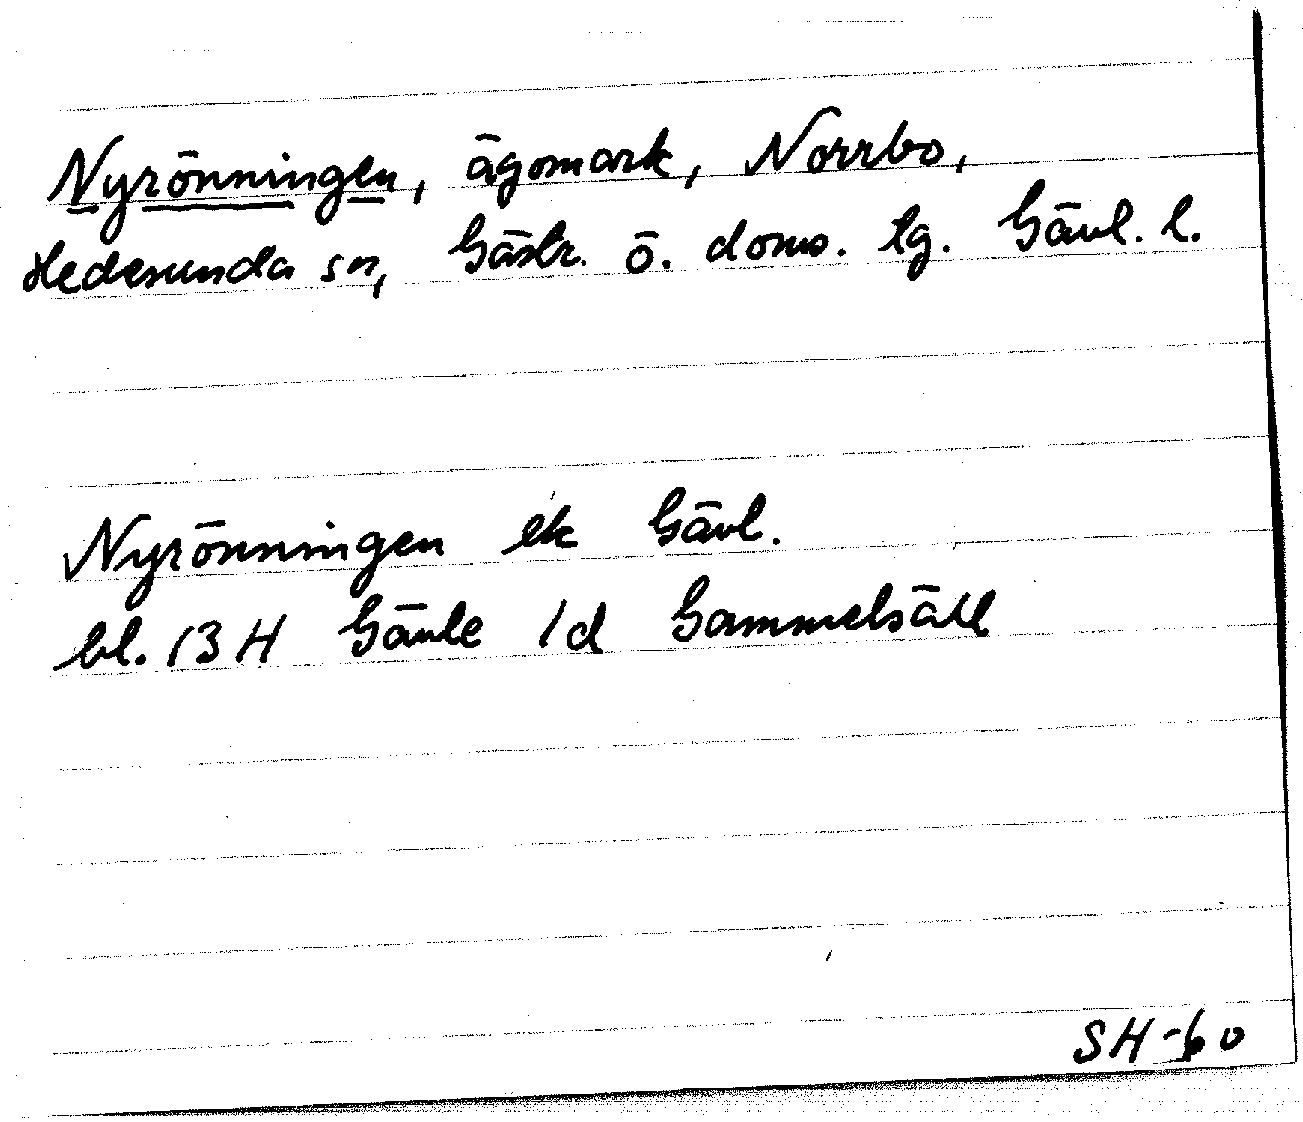 Nyrönningen, ägomark, Norrbo,
Hedesunda sn, Gästr. ö. doms. tg. Gävl. l.
Nyrönningen ek Gävl.
bl. 13 H Gävle 1d Gammelsäll
SH-60